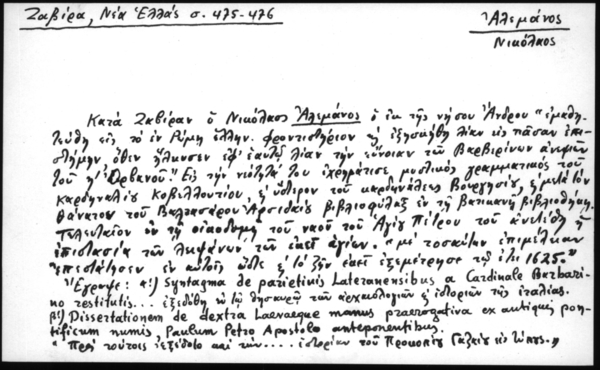 Ζαβίρα, Νέα Ἑλλάς σ. 475-476
Ἀλεμάνος
Νικόλαος
Κατά Ζαβίραν ὁ Νικόλαος Ἀλεμάνος ὁ ἐκ τῆς νήσου Ἄνδρου "ἐμαθη-
τεύθη εἰς τό ἐν Ρώμῃ ἑλλην. φροντιστήριον καί ἐξησκήθη λίαν εἰς πᾶσαν ἐπι-
στήμην ὅθεν ἥλκυσεν ἐφ' ἑαυτόν λίαν τήν εὔνοιαν τῶν Βαρβερίνων ἀνεψιῶν
τοῦ η' Ὀρβανοῦ". Εἰς τήν νεότητά του ἐχρημάτισε μυστικός γραμματικός τοῦ
καρδηναλίου Κοβελλουτίου, ὕστερον τοῦ καρδηνάλεως Βουργησίου, μετά τόν
θάνατον τοῦ Βαλτασάρου Ἀνσιδαίου βιβλιοφύλαξ ἐν τῇ Βατικανῇ βιβλιοθήκῃ.
Τελευταῖον ἐν τῇ οἰκοδομῇ τοῦ ναοῦ τοῦ Ἁγίου Πέτρου τοῦ ἀνετέθη ἡ
ἐπιστασία τῶν λειψάνων τῶν ἐκεῖ ἁγίων. "μέ τοσαύτην ἐπιμέλειαν
ἐπεστάτησεν ἐν αὐτοῖς ὥστε τό ζῆν ἐκεῖ ἐξεμέτρησε τῷ ἔτει 1625."
Ἔγραψε: α!) Syntagma de parietinis Lateranensibus a Cardinale Barbari-
no restitutis... ἐξεδόθη ἐν τῷ θησαυρῷ τῶν ἀρχαιολογιῶν ἱστοριῶν τῆς Ἰταλίας.
β!) Dissertationem de dextra Laevaeque manus praerogativa ex antiquis pon-
tificum numis Paulum Petro Apostolo anteponentibus.
"Πρός τούτοις ἐξέδοτο καί τήν.... ἱστορίαν τοῦ Προκοπίου Γαζαίου εἰς τύπους."